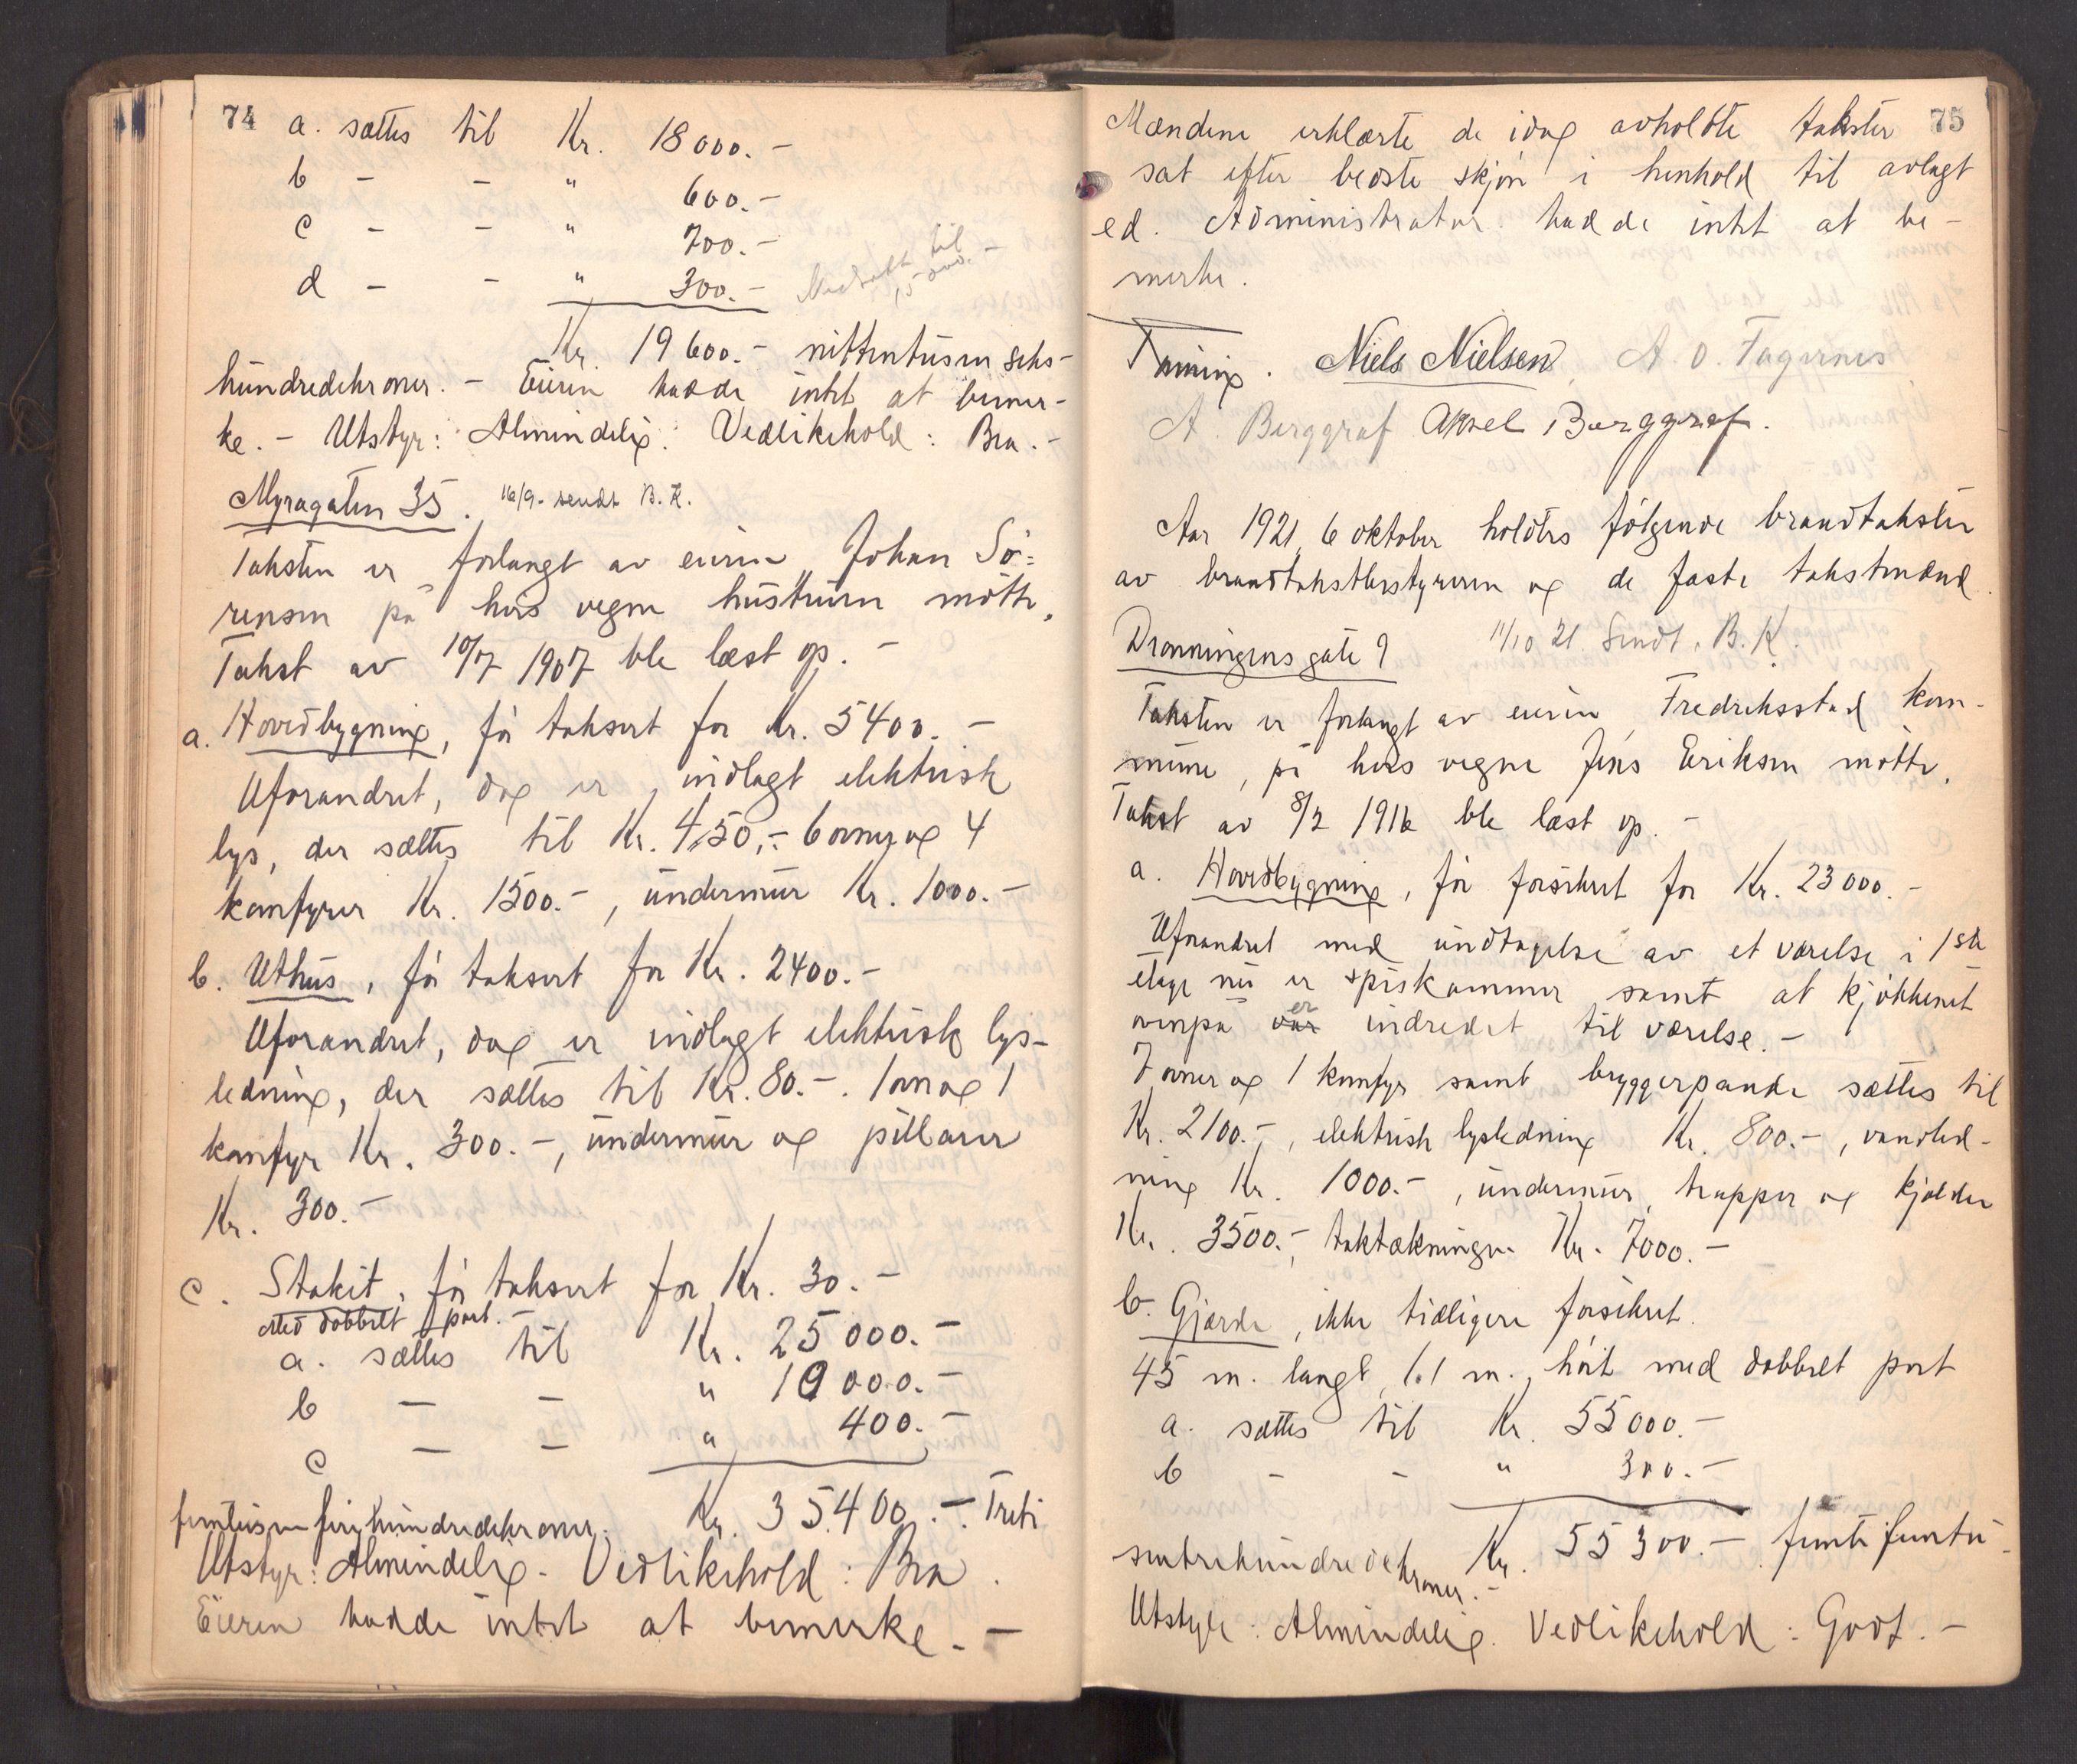 74
a. sættes til Kr. 18000.-
b - - " 600.-
c - - " 700.-
d - - " 300.- Nedsatt til 15000.-
Kr. 19600.- nittentusen seks-
hundredekroner. - Eieren hadde intet at bemer-
ke. - Utstyr: Almindelig. Vedlikehold: Bra.-
Myragaten 35. 16/9- sendt B.K.
Taksten er forlangt av eieren Johan Sö-
rensen på hvis vegne hustruen mötte.
Takst av 10/7 1907 ble læst op. -
a. Hovedbygning, för taksert for Kr. 5400.-
Uforandret, dog er indlagt elektrisk
lys, der sættes til Kr. 450,- 6 ovner og 4
komfyrer Kr. 1500.-, undermur Kr. 1000.-
b. Uthus, för taksert for Kr. 2400.-
Uforandret, dog er indlagt elektrisk lys-
ledning, der sættes til Kr. 80.-. 1 ovn og 1
komfyr Kr. 300.-, undermur og pillarer
Kr. 300.-
c. Stakit, för taksert for Kr. 30.-
med dobbelt port.-
a. sættes til Kr. 25000.-
b - - " 10000.-
c - - " 400.-
Kr. 35400.-. Treti
femtusen firehundredekroner.
Utstyr: Almindelig. Vedlikehold: Bra.
Eieren hadde intet at bemerke. -
75
Mændene erklærte de idag avholdte takster
sat efter bedste skjön i henhold til avlagt
ed. Administrator hadde intet at be-
merke.
Niels Nielsen, A. O. Fagernes
A. Berggraf Aksel Berggraf.
Aar 1921, 6 oktober holdtes följende brandtakster
av brandtakstbestyreren og de faste takstmænd.
Dronningens gate 9 11/10 21 Sendt. B.K.
Taksten er forlangt av eieren Fredriksstad kom-
mune, på hvis vegne Jens Eriksen mötte.
Takst av 8/2 1916 ble læst op. -
a. Hovedbygning, för forsikret for Kr. 23000.-
Uforandret med undtagelse av et værelse i 1ste
etage nu er spiskammer samt at kjökkenet
ovenpå var er indredet til værelse. -
7 ovner og 1 komfyr samt bryggerpande sættes til
Kr. 2100.-, elektrisk lysledning Kr. 800.-, vandled-
ning Kr. 1000.-, undermur, trapper og kjælder
Kr. 3500.-, taktækningen Kr. 7000.-
b. Gjærde, ikke tidligere forsikret.
45 m. langt, 1.1 m. höit med dobbelt port
a. sættes til Kr. 55000.-
b - - " 300.-
Kr. 55300.- femti femtu-
sentrehundredekroner.-
Utstyr: Almindelig. Vedlikehold: Godt.-